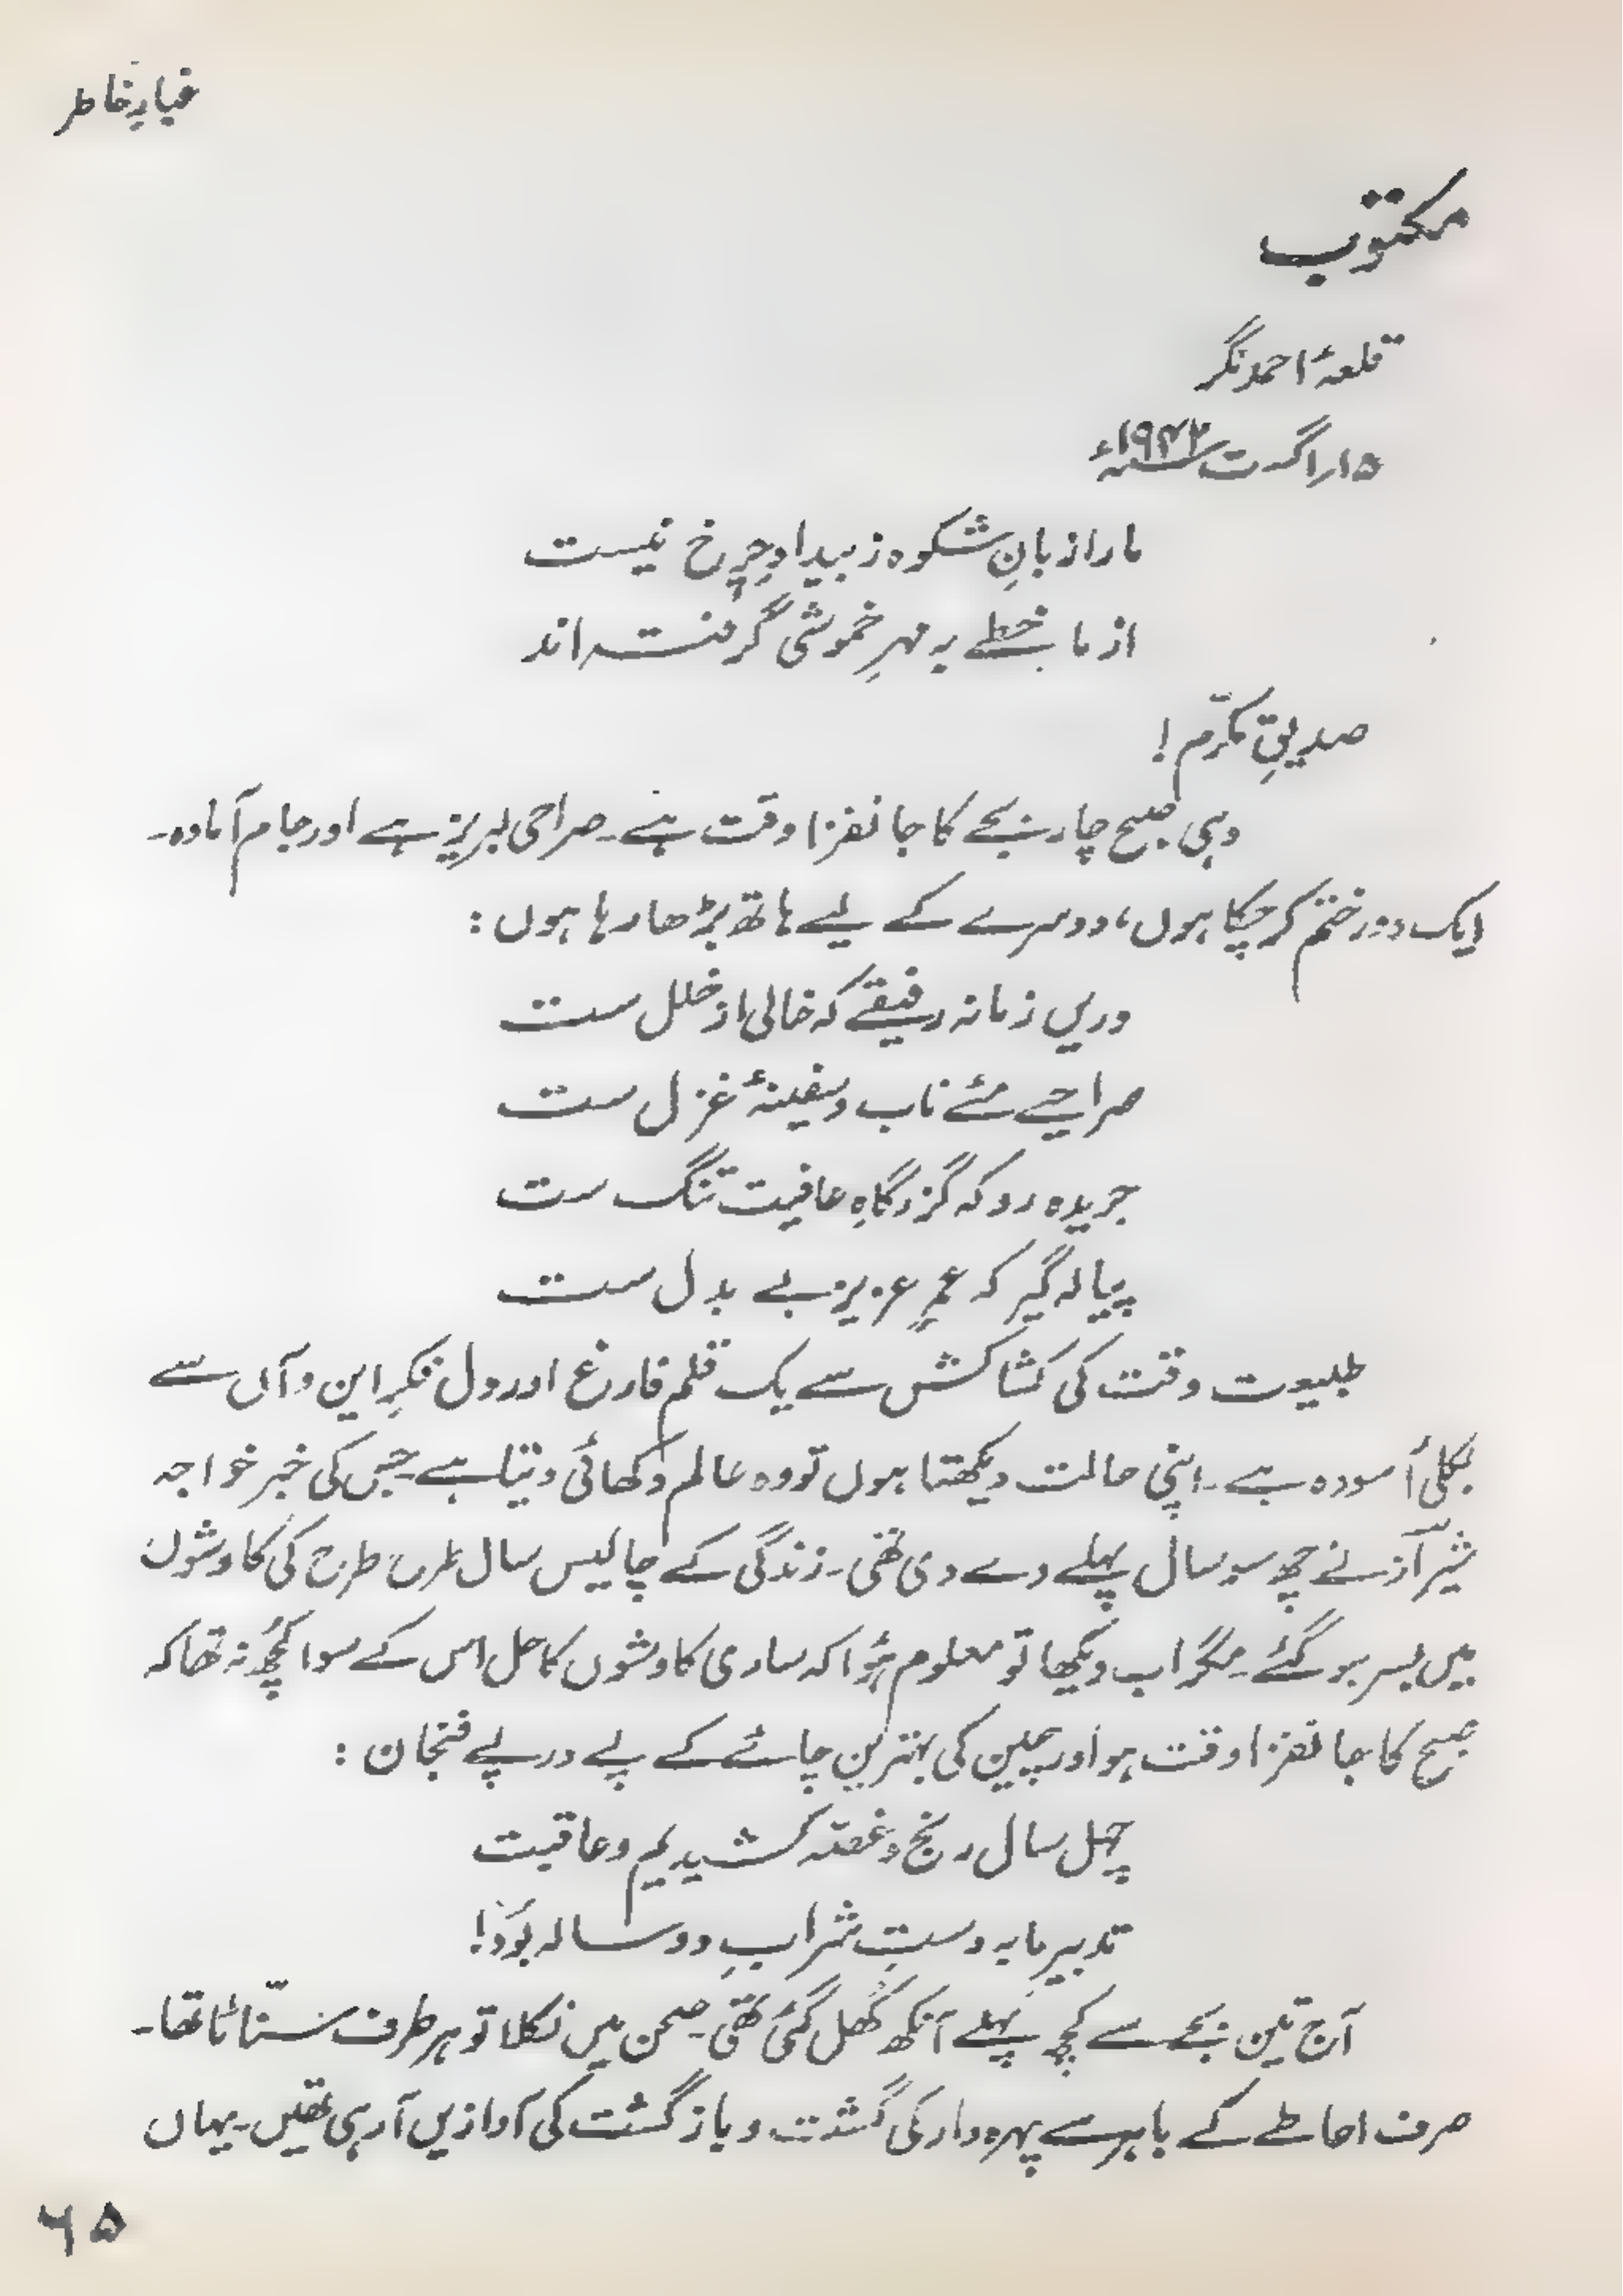 غبارِ خاطر
مکتوب
قلعۂ احمدنگر
۱۵؍اگست ۱۹۴۲ء
ما را زبانِ شکوہ ز بیدادِ چرخ نیست
از ما خطے بہ مہرِ خموشی گرفتہ اند
صدیقِ مکرّم!
وہی صبح چار بجے کا جانفزا وقت ہے۔ صراحی لبریز ہے اور جام آمادہ۔
ایک دور ختم کر چکا ہوں، دوسرے کے لیے ہاتھ بڑھا رہا ہوں:
دریں زمانہ رفیقے کہ خالی از خلل ست
صراحیِ مئے ناب و سفینۂ غزل ست
جریدہ رو کہ گزرگاہِ عافیت تنگ ست
پیالہ گیر کہ عمرِ عزیز بے بدل ست
طبیعت وقت کی کشاکش سے یک قلم فارغ اور دل فکرِ این و آں سے
بکلی آسودہ ہے۔ اپنی حالت دیکھتا ہوں تو وہ عالم دکھائی دیتا ہے جس کی خبر خواجہ
شیراز نے چھ سو سال پہلے دے دی تھی۔ زندگی کے چالیس سال طرح طرح کی کاوشوں
میں بسر ہو گئے۔ مگر اب دیکھا تو معلوم ہُوا کہ ساری کاوشوں کا حل اس کے سوا کچھ نہ تھا کہ
صبح کا جانفزا وقت ہو اور چین کی بہترین چائے کے پے درپے فنجان:
چہل سال رنج و غصّہ کشیدیم و عاقبت
تدبیرِ ما بہ دستِ شرابِ دو سالہ بُود!
آج تین بجے سے کچھ پہلے آنکھ کُھل گئی تھی۔ صحن میں نکلا تو ہر طرف سنّاٹا تھا۔
صرف احاطے کے باہر سے پہرہ دار کی گشت و بازگشت کی آوازیں آرہی تھیں۔ یہاں
۶۵